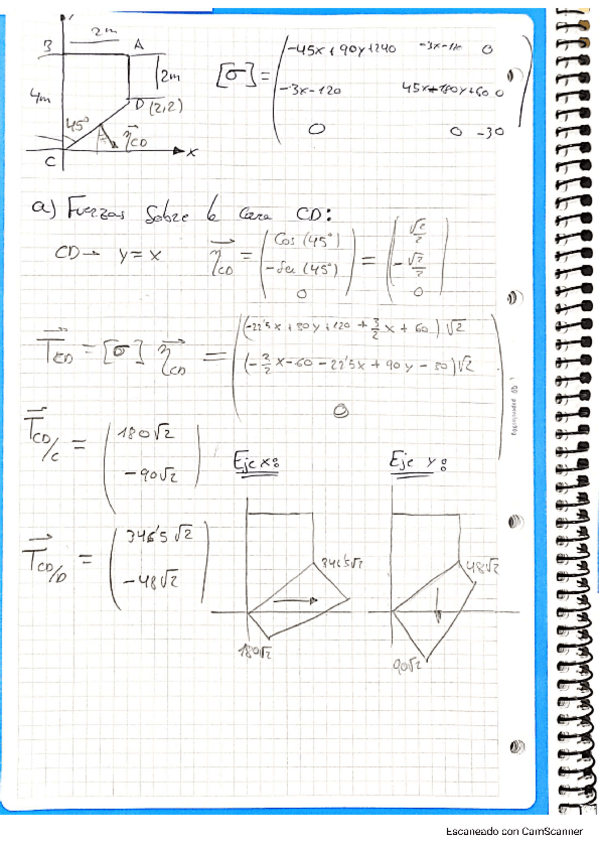 y
2m
B A
2m
4m
D (2,2)
45°
η_CD
C x
[σ] = ( -45x + 90y + 240 -3x-120 0
-3x-120 45x+180y+60 0
0 0 -30 )
a) Fuerzas Sobre la Cara CD:
CD → y = x η_CD = ( Cos (45°) -Sen (45°) 0 ) = ( √2/2 -√2/2 0 )
T_CD = [σ] η_CD = ( (-22'5x + 90y + 120 + 3/2 x + 60) √2
(-3/2 x - 60 - 22'5x + 90y - 30) √2
0 )
T_CD/C = ( 180√2 -90√2 )
Eje x: Eje y:
T_CD/D = ( 346'5 √2 -48√2 )
346'5√2 48√2
180√2 90√2
Escaneado con CamScanner